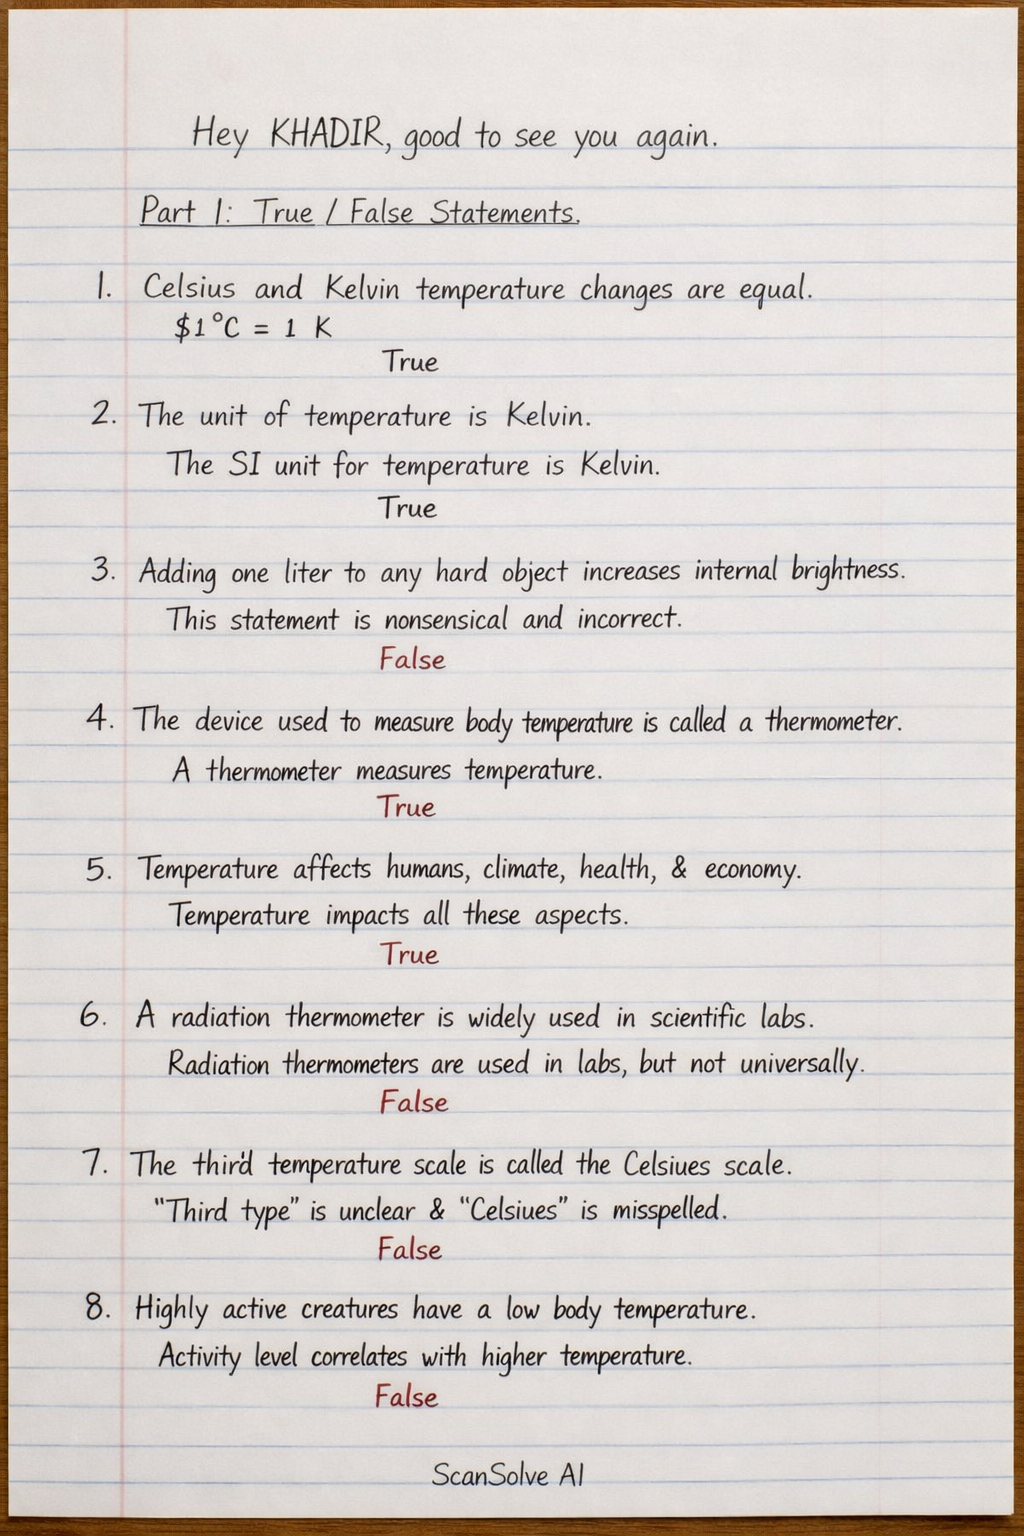 Hey KHADIR, good to see you again.
Part 1: True / False Statements.
1. Celsius and Kelvin temperature changes are equal.
$1°C = 1 K
True
2. The unit of temperature is Kelvin.
The SI unit for temperature is Kelvin.
True
3. Adding one liter to any hard object increases internal brightness.
This statement is nonsensical and incorrect.
False
4. The device used to measure body temperature is called a thermometer.
A thermometer measures temperature.
True
5. Temperature affects humans, climate, health, & economy.
Temperature impacts all these aspects.
True
6. A radiation thermometer is widely used in scientific labs.
Radiation thermometers are used in labs, but not universally.
False
7. The third temperature scale is called the Celsiues scale.
"Third type" is unclear & "Celsiues" is misspelled.
False
8. Highly active creatures have a low body temperature.
Activity level correlates with higher temperature.
False
ScanSolve AI